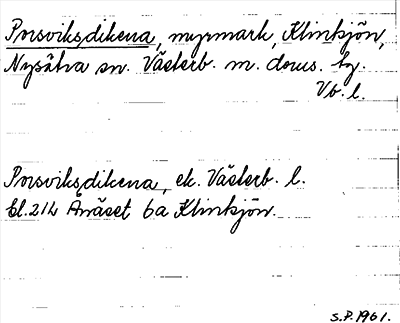 Porsviksdikena, myrmark, Klinksjön,
Nysätra sn. Västerb. m. doms. bg.
Vb. l.
Porsviksdikena, ek. Västerb. l.
bl. 21L Ånäset 6a Klinksjön.
S.P. 1961.